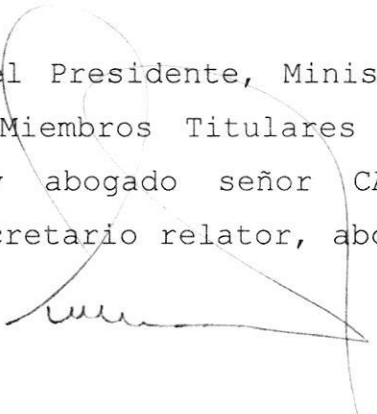 el Presidente, Minis
Miembros Titulares
abogado señor CA
cretario relator, abo